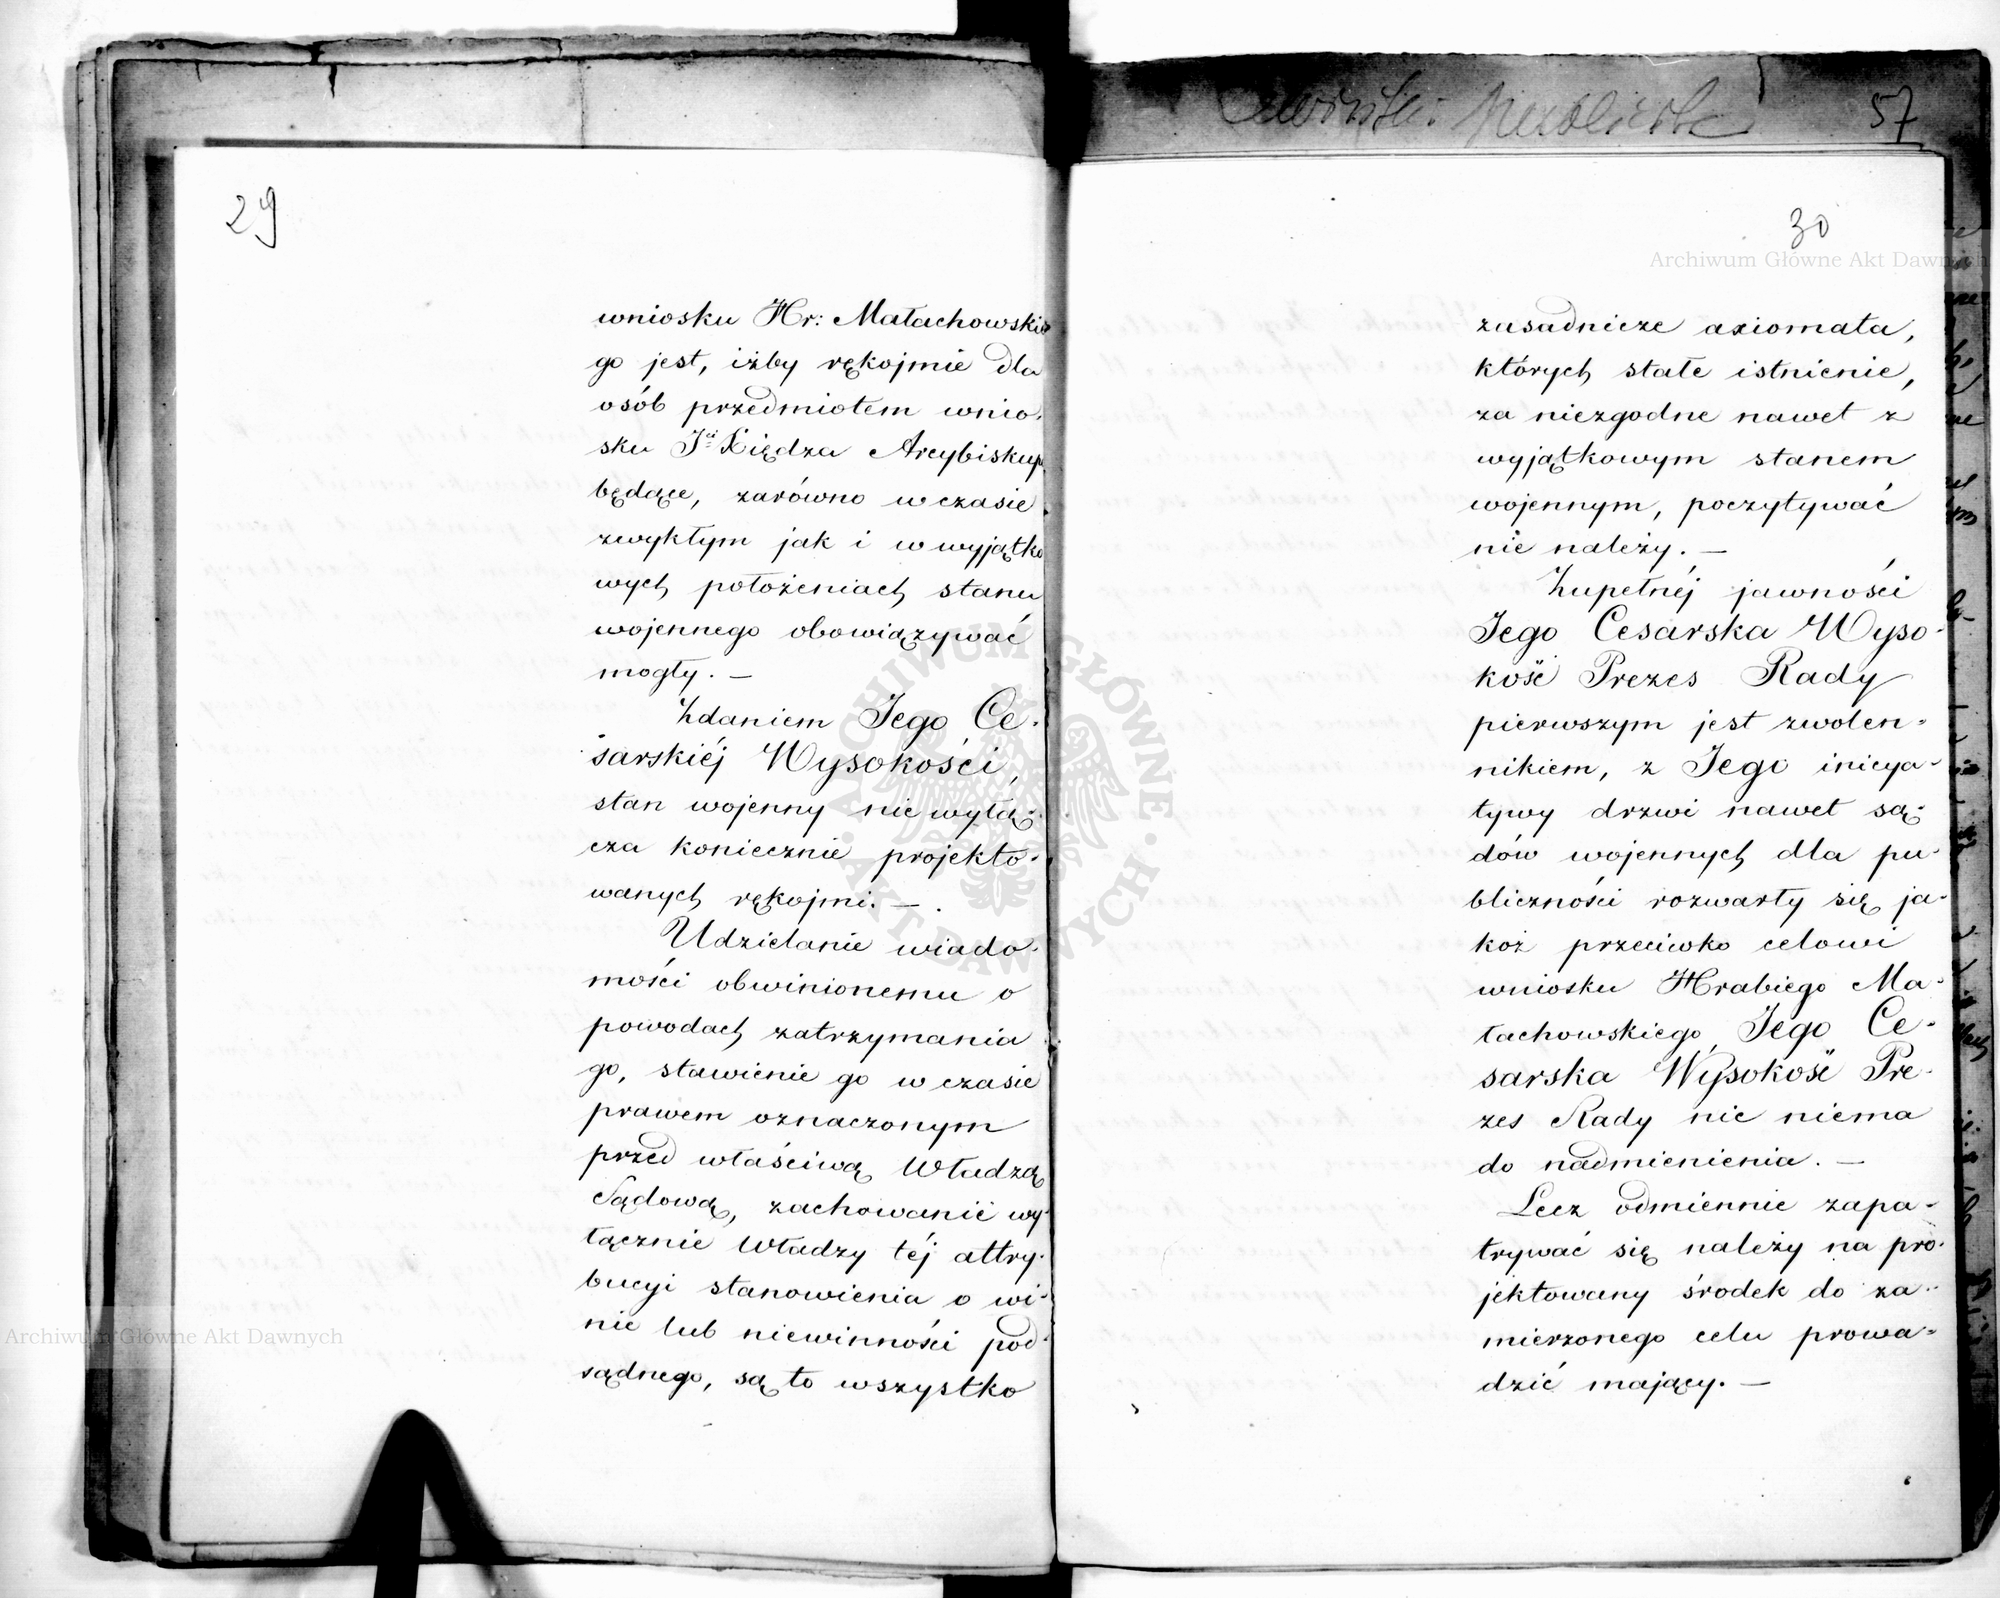 29
wniosku Hr: Małachowskie
go jest, iżby rękojmie dla
osób przedmiotem wnio-
sku Jci Xiędza Arcybiskupa
będące, zarówno w czasie
zwykłym jak i w wyjątko
wych położeniach stanu
wojennego obowiązywać
mogły. —
Zdaniem Jego Ce-
sarskiéj Wysokości,
stan wojenny nie wyłą-
cza koniecznie projekto-
wanych rękojmi. —
Udzielanie wiado-
mości obwinionemu o
powodach zatrzymania
go, stawienie go w czasie
prawem oznaczonym
przed właściwą Władzą
Sądową, zachowanie wy-
łącznie Władzy téj attry-
bucyi stanowienia o wi-
nie lub niewinności pod-
sądnego, są to wszystko
57
30
zasadnicze axiomata,
których stałe istnienie,
za niezgodne nawet z
wyjątkowym stanem
wojennym, poczytywać
nie należy. —
Zupełnéj jawności
Jego Cesarska Wyso-
kość Prezes Rady
pierwszym jest zwolen-
nikiem, z Jego inicya-
tywy drzwi nawet są-
dów wojennych dla pu-
bliczności rozwarły się ja-
koż przeciwko celowi
wniosku Hrabiego Ma-
łachowskiego, Jego Ce-
sarska Wysokość Pre-
zes Rady nic niema
do nadmienienia. —
Lecz odmiennie zapa-
trywać się należy na pro-
jektowany środek do za-
mierzonego celu prowa-
dzić mający. —
Archiwum Główne Akt Dawnych
Archiwum Główne Akt Dawnych
ARCHIWUM GŁÓWNE · AKT DAWNYCH ·